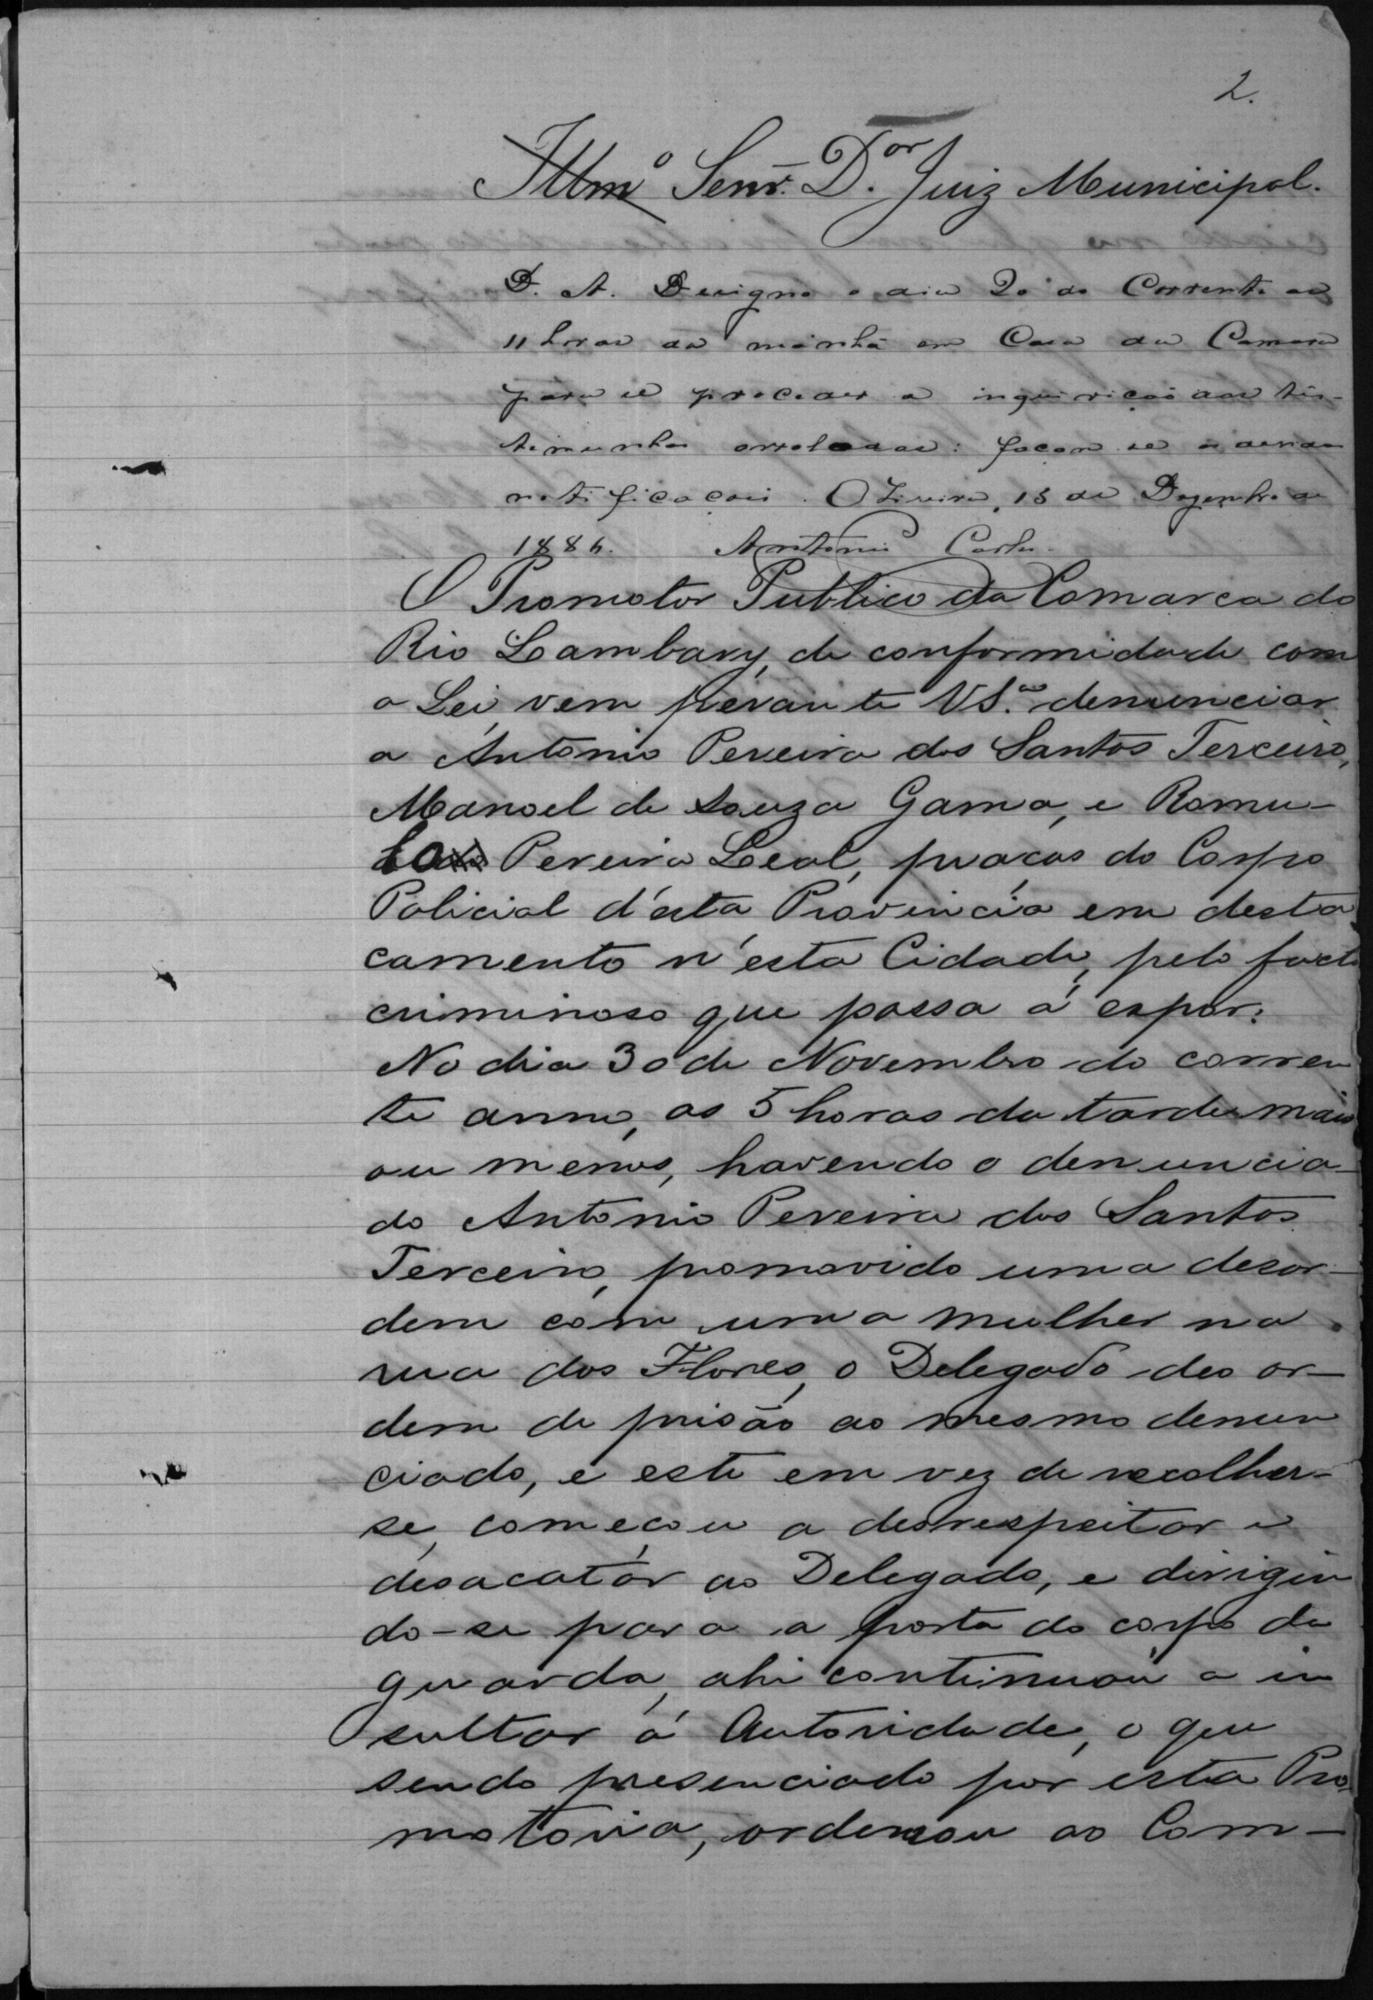 2.
Illmº Senr. Dor. Juiz Municipal.
D. A. Designo o dia 20 do Corrente as
11 horas da manhã em Casa da Camara
para se proceder a inquirição das tes-
temunhas arroladas: façam se as devidas
notificações. Oliveira, 15 de Dezembro de
1886. Antonio Carlos
O Promotor Publico da Comarca do
Rio Lambary, de conformidade com
a Lei, vem perante VSª. denunciar
a Antonio Pereira dos Santos Terceiro,
Manoel de Souza Gama, e Romu-
lo Pereira Leal, praças do Corpo
Policial d'esta Provincia em desta
camento n'esta Cidade, pelo facto
criminoso que passa á expor:
No dia 30 de Novembro do corren
te anno, as 5 horas da tarde mais
ou menos, havendo o denuncia-
do Antonio Pereira dos Santos
Terceiro, promovido uma desor-
dem com uma mulher na
rua das Flores, o Delegado deo or-
dem de prisão ao mesmo denun
ciado, e este em vez de recolher-
se, começou a desrespeitar e
desacatar ao Delegado, e dirigin
do-se para a porta do corpo da
guarda, ahi continuou a in
sultar á Autoridade, o que
sendo presenciado por esta Pro
motoria, ordenou ao Com-